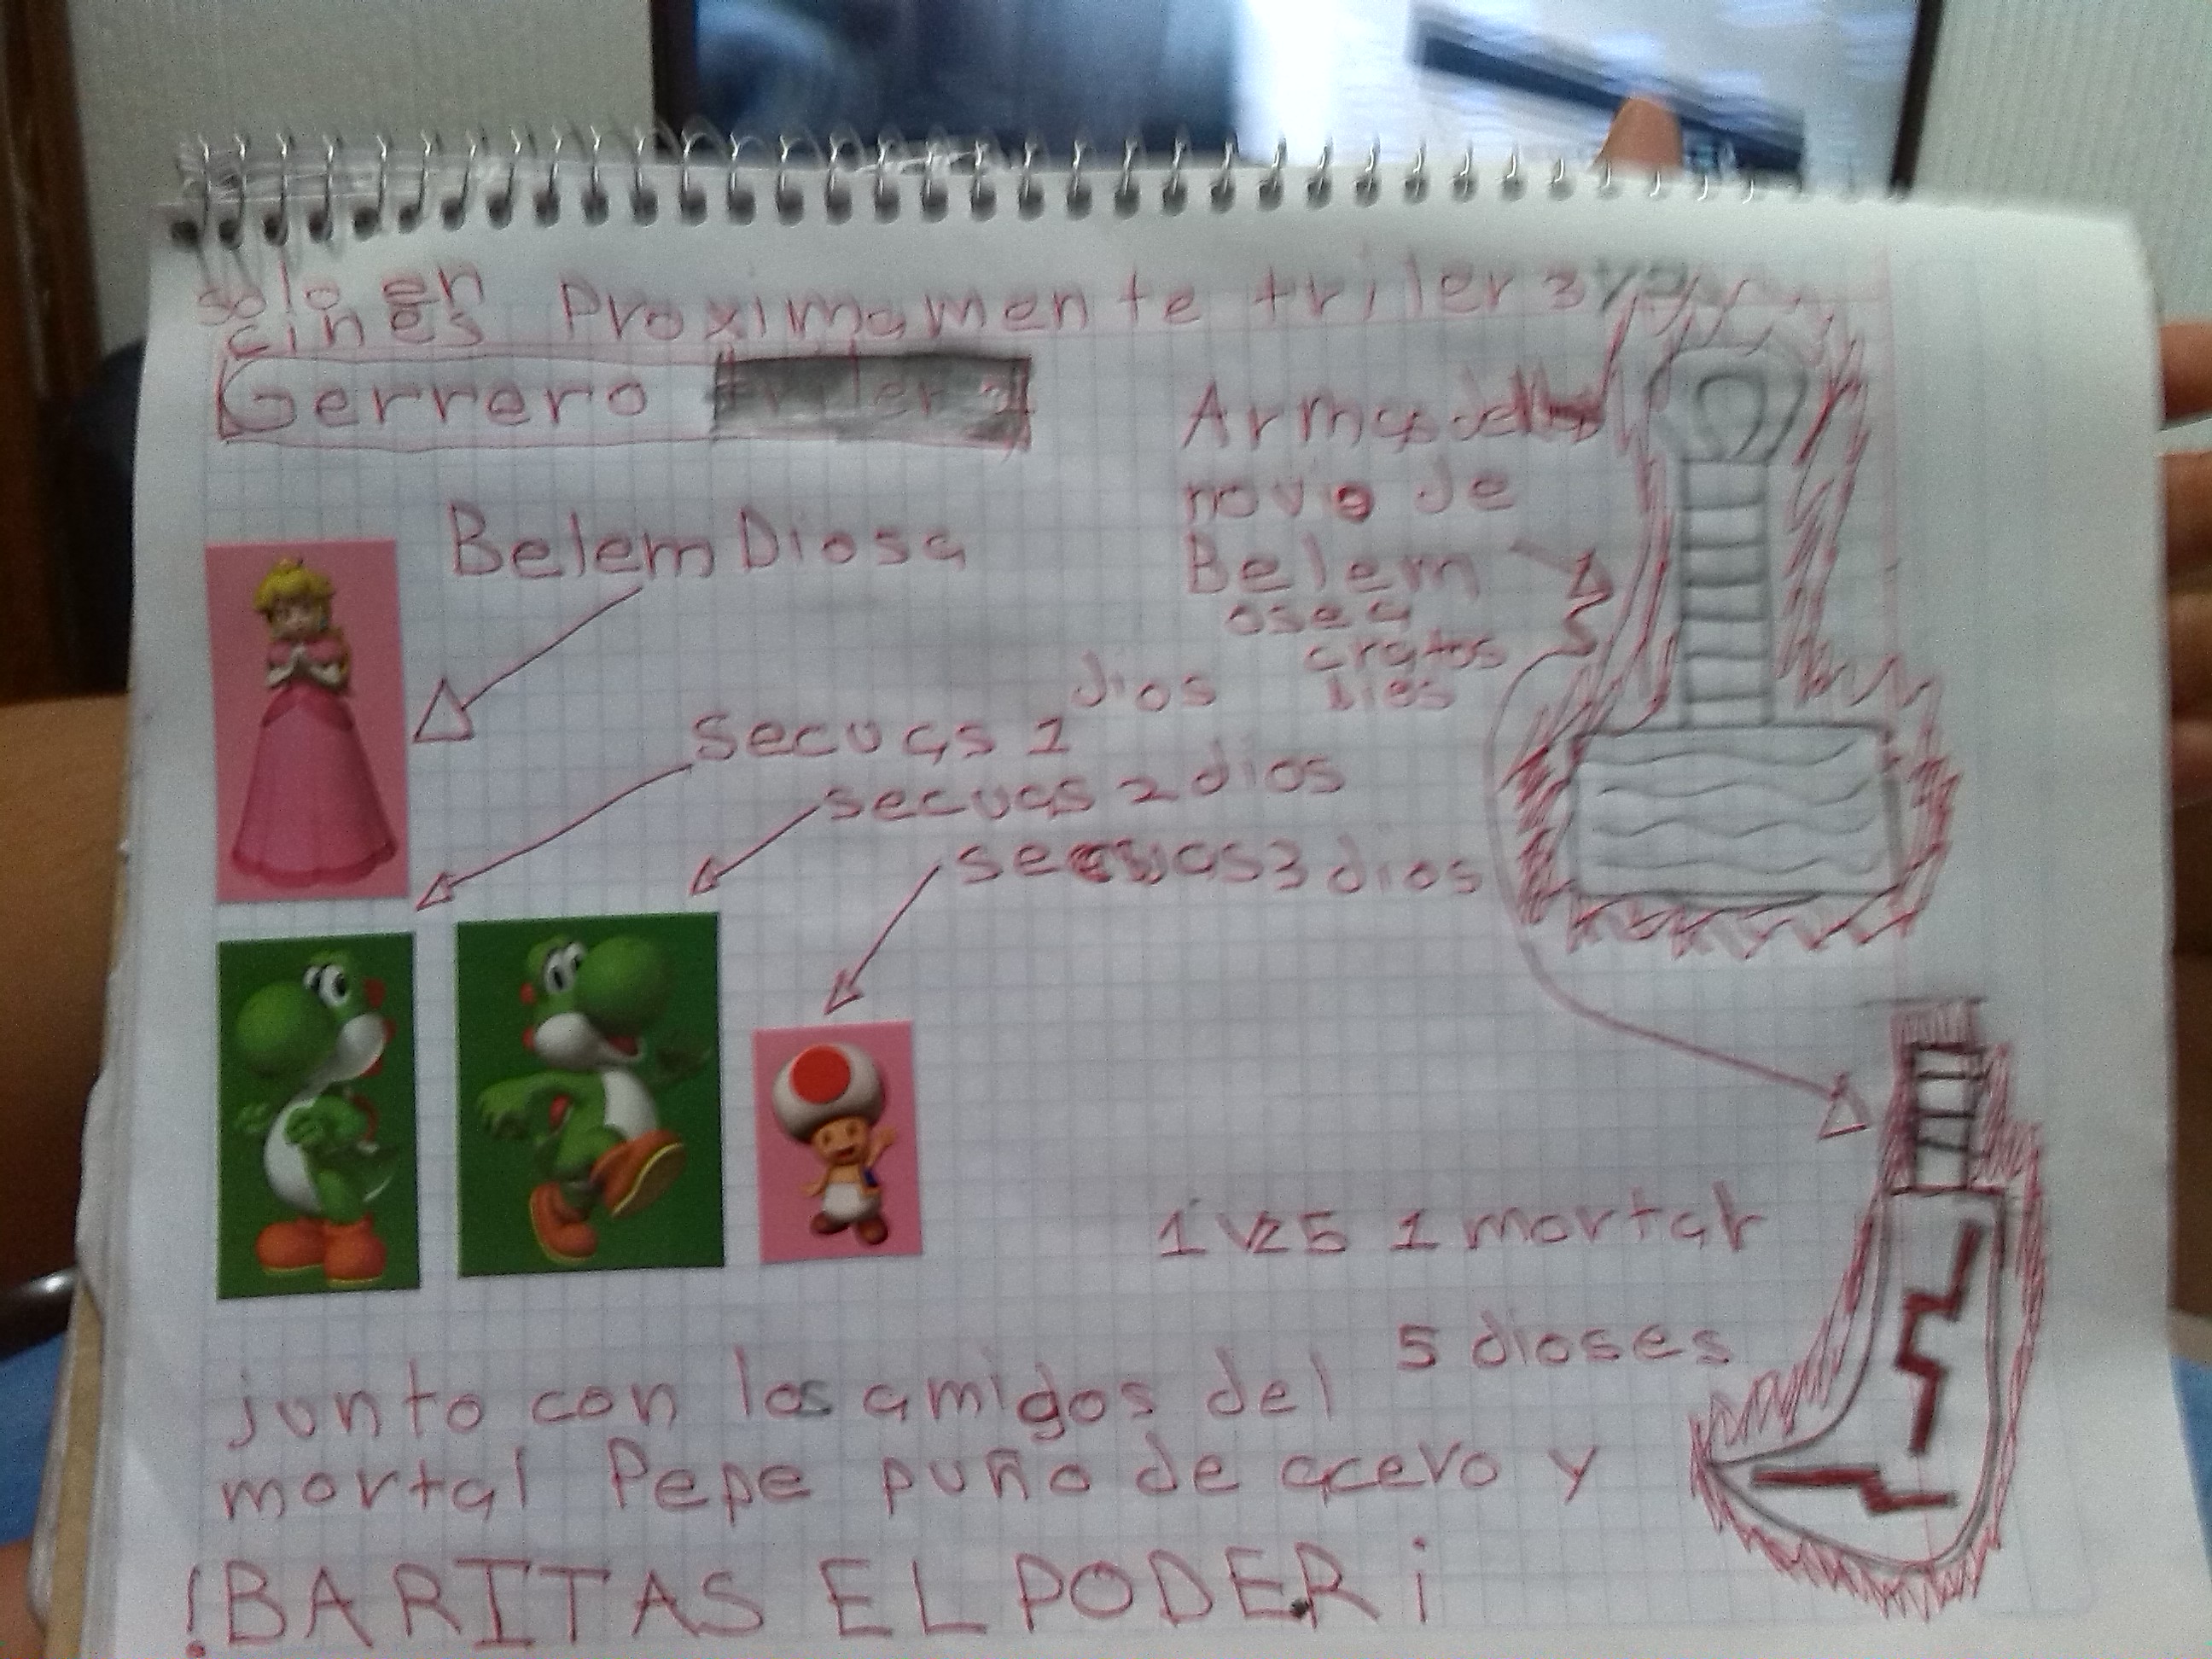 solo en
cines Proximamente triler 3
Gerrero triler 2
Armas del
novio de
Belem
osea
cratos
dios
Belem Diosa
secuas 1 dios
secuas 2 dios
secuas 3 dios
1 vs 5 1 mortal
5 dioses
junto con los amigos del
mortal Pepe puño de acero y
!BARITAS EL PODER¡